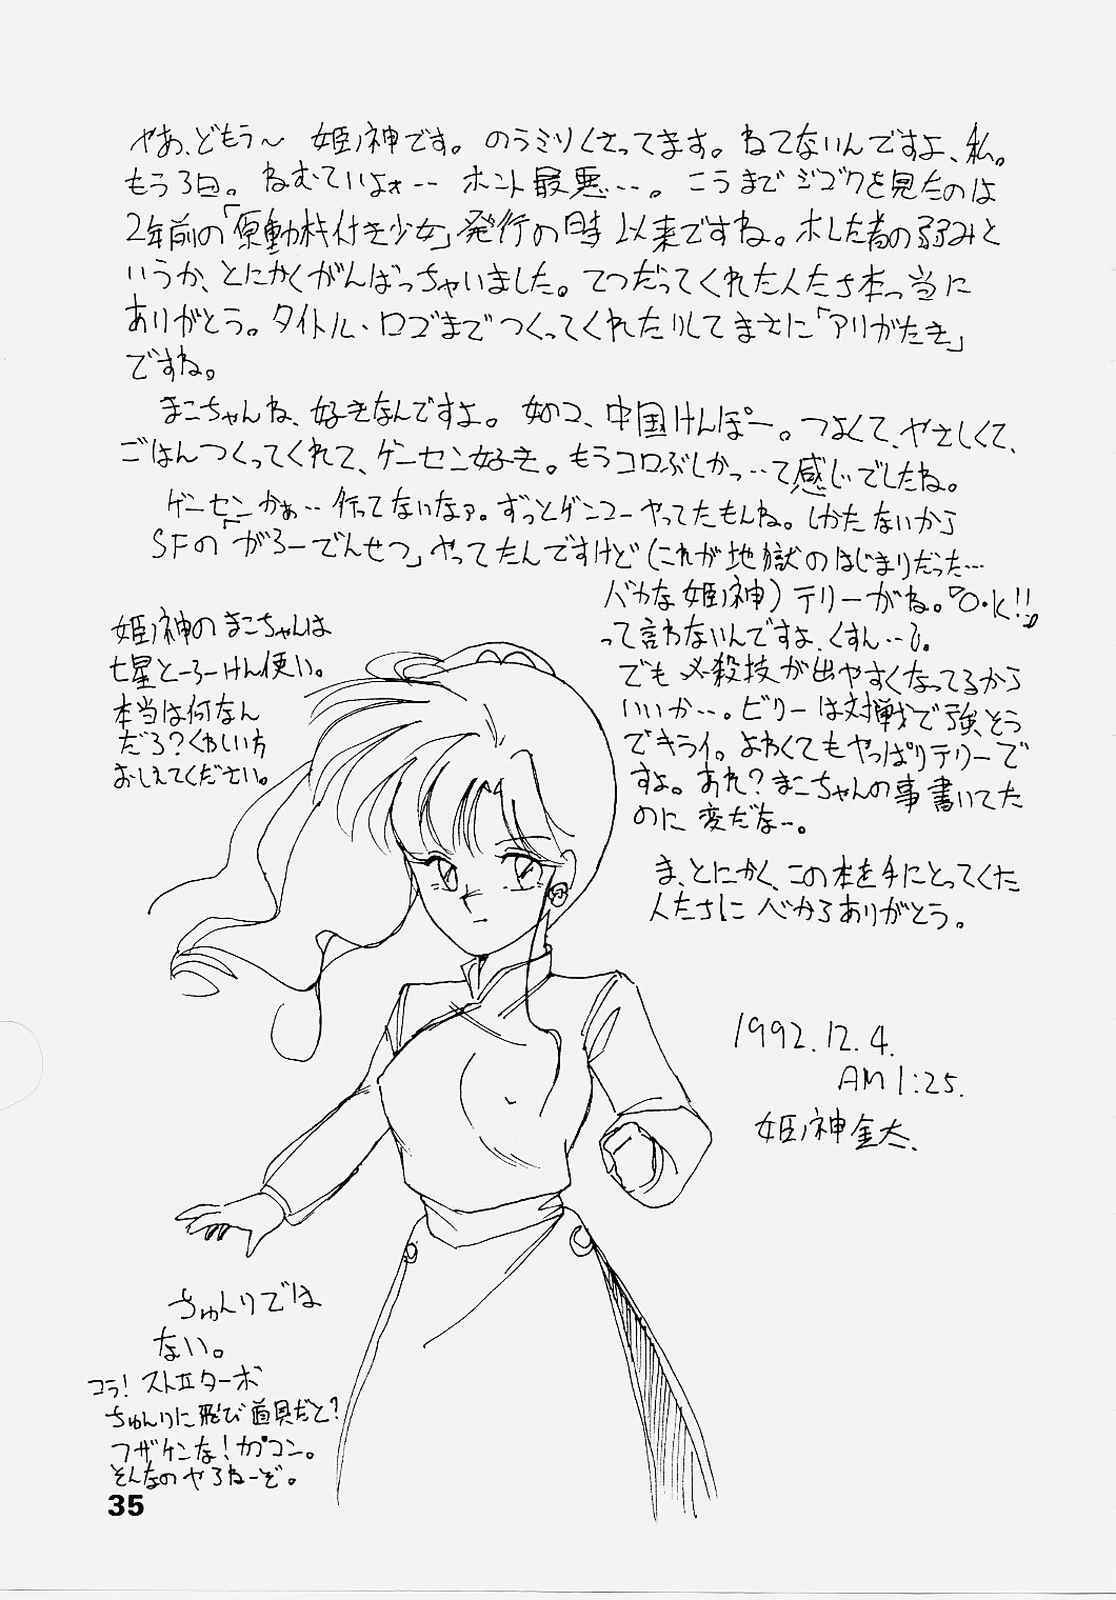 やあ、どもう〜 姫ノ神です。のうミソくさってます。ねてないんですよ、私。
もう3日。ねむていよォ‥‥ ホント最悪‥‥。こうまでジゴクを見たのは
2年前の「原動機付き少女」発行の時以来ですね。ホレた者の弱みと
いうか、とにかくがんばっちゃいました。てつだってくれた人たち本っ当に
ありがとう。タイトル・ロゴまでつくってくれたりしてまさに「アリがたき」
ですね。
まこちゃんね、好きなんですよ。女のコ、中国けんぽー。つよくて、やさしくて、
ごはんつくってくれて、ゲーセン好き。もうコロぶしかっ‥て感じでしたね。
ゲーセンかぁ‥‥行ってないなァ。ずっとゲンコーやってたもんね。しかたないから
SFの「がろーでんせつ」やってたんですけど(これが地獄のはじまりだった‥‥
バカな姫ノ神)テリーがね。『O・K!!』
って言わないんですよ、くすん‥‥。
でも必殺技が出やすくなってるから
いいか‥‥。ビリーは対戦で強そう
でキライ。よわくてもやっぱりテリーで
すよ。あれ?まこちゃんの事書いてた
のに変だな‥。
ま、とにかく、この本を手にとってくた
人たちに べかるありがとう。
1992.12.4.
AM1:25.
姫ノ神金太.
姫ノ神のまこちゃんは
七星とーろーけん使い。
本当は何なん
だろ?くわしい方
おしえてください。
ちゅんりでは
ない。
コラ!ストⅡターボ
ちゅんりに飛び道具だと?
フザケンな!カプコン。
そんなのやろねーぞ。
35